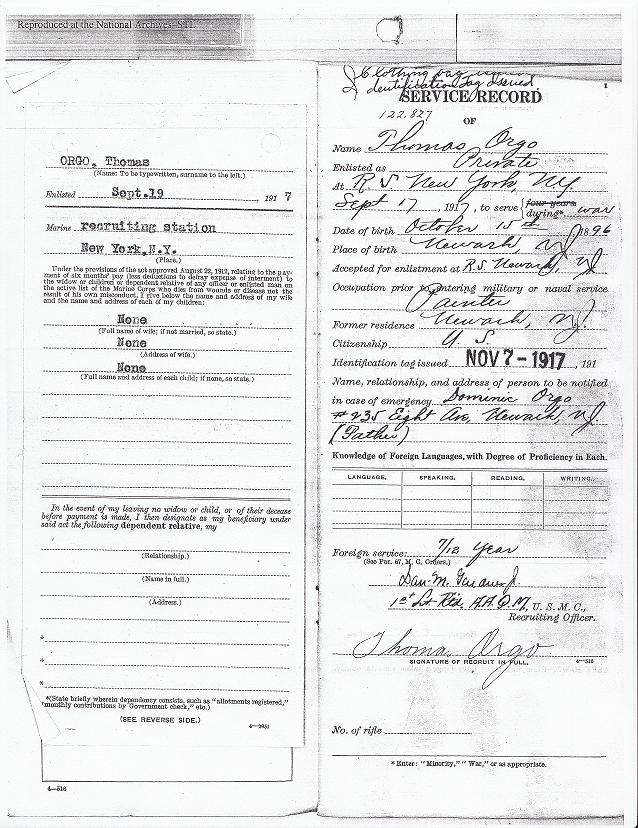 Reproduced at the National Archives-STL
ORGO, Thomas
(Name: To be typewritten, surname to the left.)
Enlisted Sept.19 191 7
Marine recruiting station
New York,N.Y.
(Place.)
Under the provisions of the act approved August 22, 1912, relating to the pay-
ment of six months' pay (less deductions to defray expense of interment) to
the widow or children or dependent relative of any officer or enlisted man on
the active list of the Marine Corps who dies from wounds or disease not the
result of his own misconduct, I give below the name and address of my wife
and the name and address of each of my children:
None
(Full name of wife; if not married, so state.)
None
(Address of wife.)
None
(Full name and address of each child; if none, so state.)
In the event of my leaving no widow or child, or of their decease
before payment is made, I then designate as my beneficiary under
said act the following dependent relative, my
(Relationship.)
(Name in full.)
(Address.)
*
*
*
*(State briefly wherein dependency consists, such as "allotments registered,"
"monthly contributions by Government check," etc.)
(SEE REVERSE SIDE.)
4—2951
4—516
Clothing bag issued
Identification tag issued.
1
SERVICE RECORD
122,827
OF
Name Thomas Orgo
Enlisted as Private
At R.S. New York, NY.
Sept 17, 1917, to serve four years during* war
Date of birth October 15th 1896
Place of birth Newark NJ
Accepted for enlistment at R.S. Newark, NJ
Occupation prior to entering military or naval service
Painter
Former residence Newark, NJ.
Citizenship U.S.
Identification tag issued NOV 7 - 1917, 191
Name, relationship, and address of person to be notified
in case of emergency Dominic Orgo
#235 Eight Av, Newark, NJ.
(Father)
Knowledge of Foreign Languages, with Degree of Proficiency in Each.
LANGUAGE. SPEAKING. READING. WRITING.
Foreign service: 7/12 Year
(See Par. 67, M. C. Orders.)
Dan. M.
1st Lt. Rtd. A.A.Q.M., U. S. M. C.,
Recruiting Officer.
Thomas Orgo
SIGNATURE OF RECRUIT IN FULL.
4—516
No. of rifle
* Enter: "Minority," "War," or as appropriate.